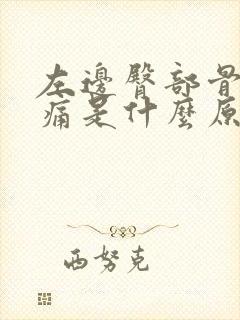 左邊臀部骨
痛是什麼原
西努克